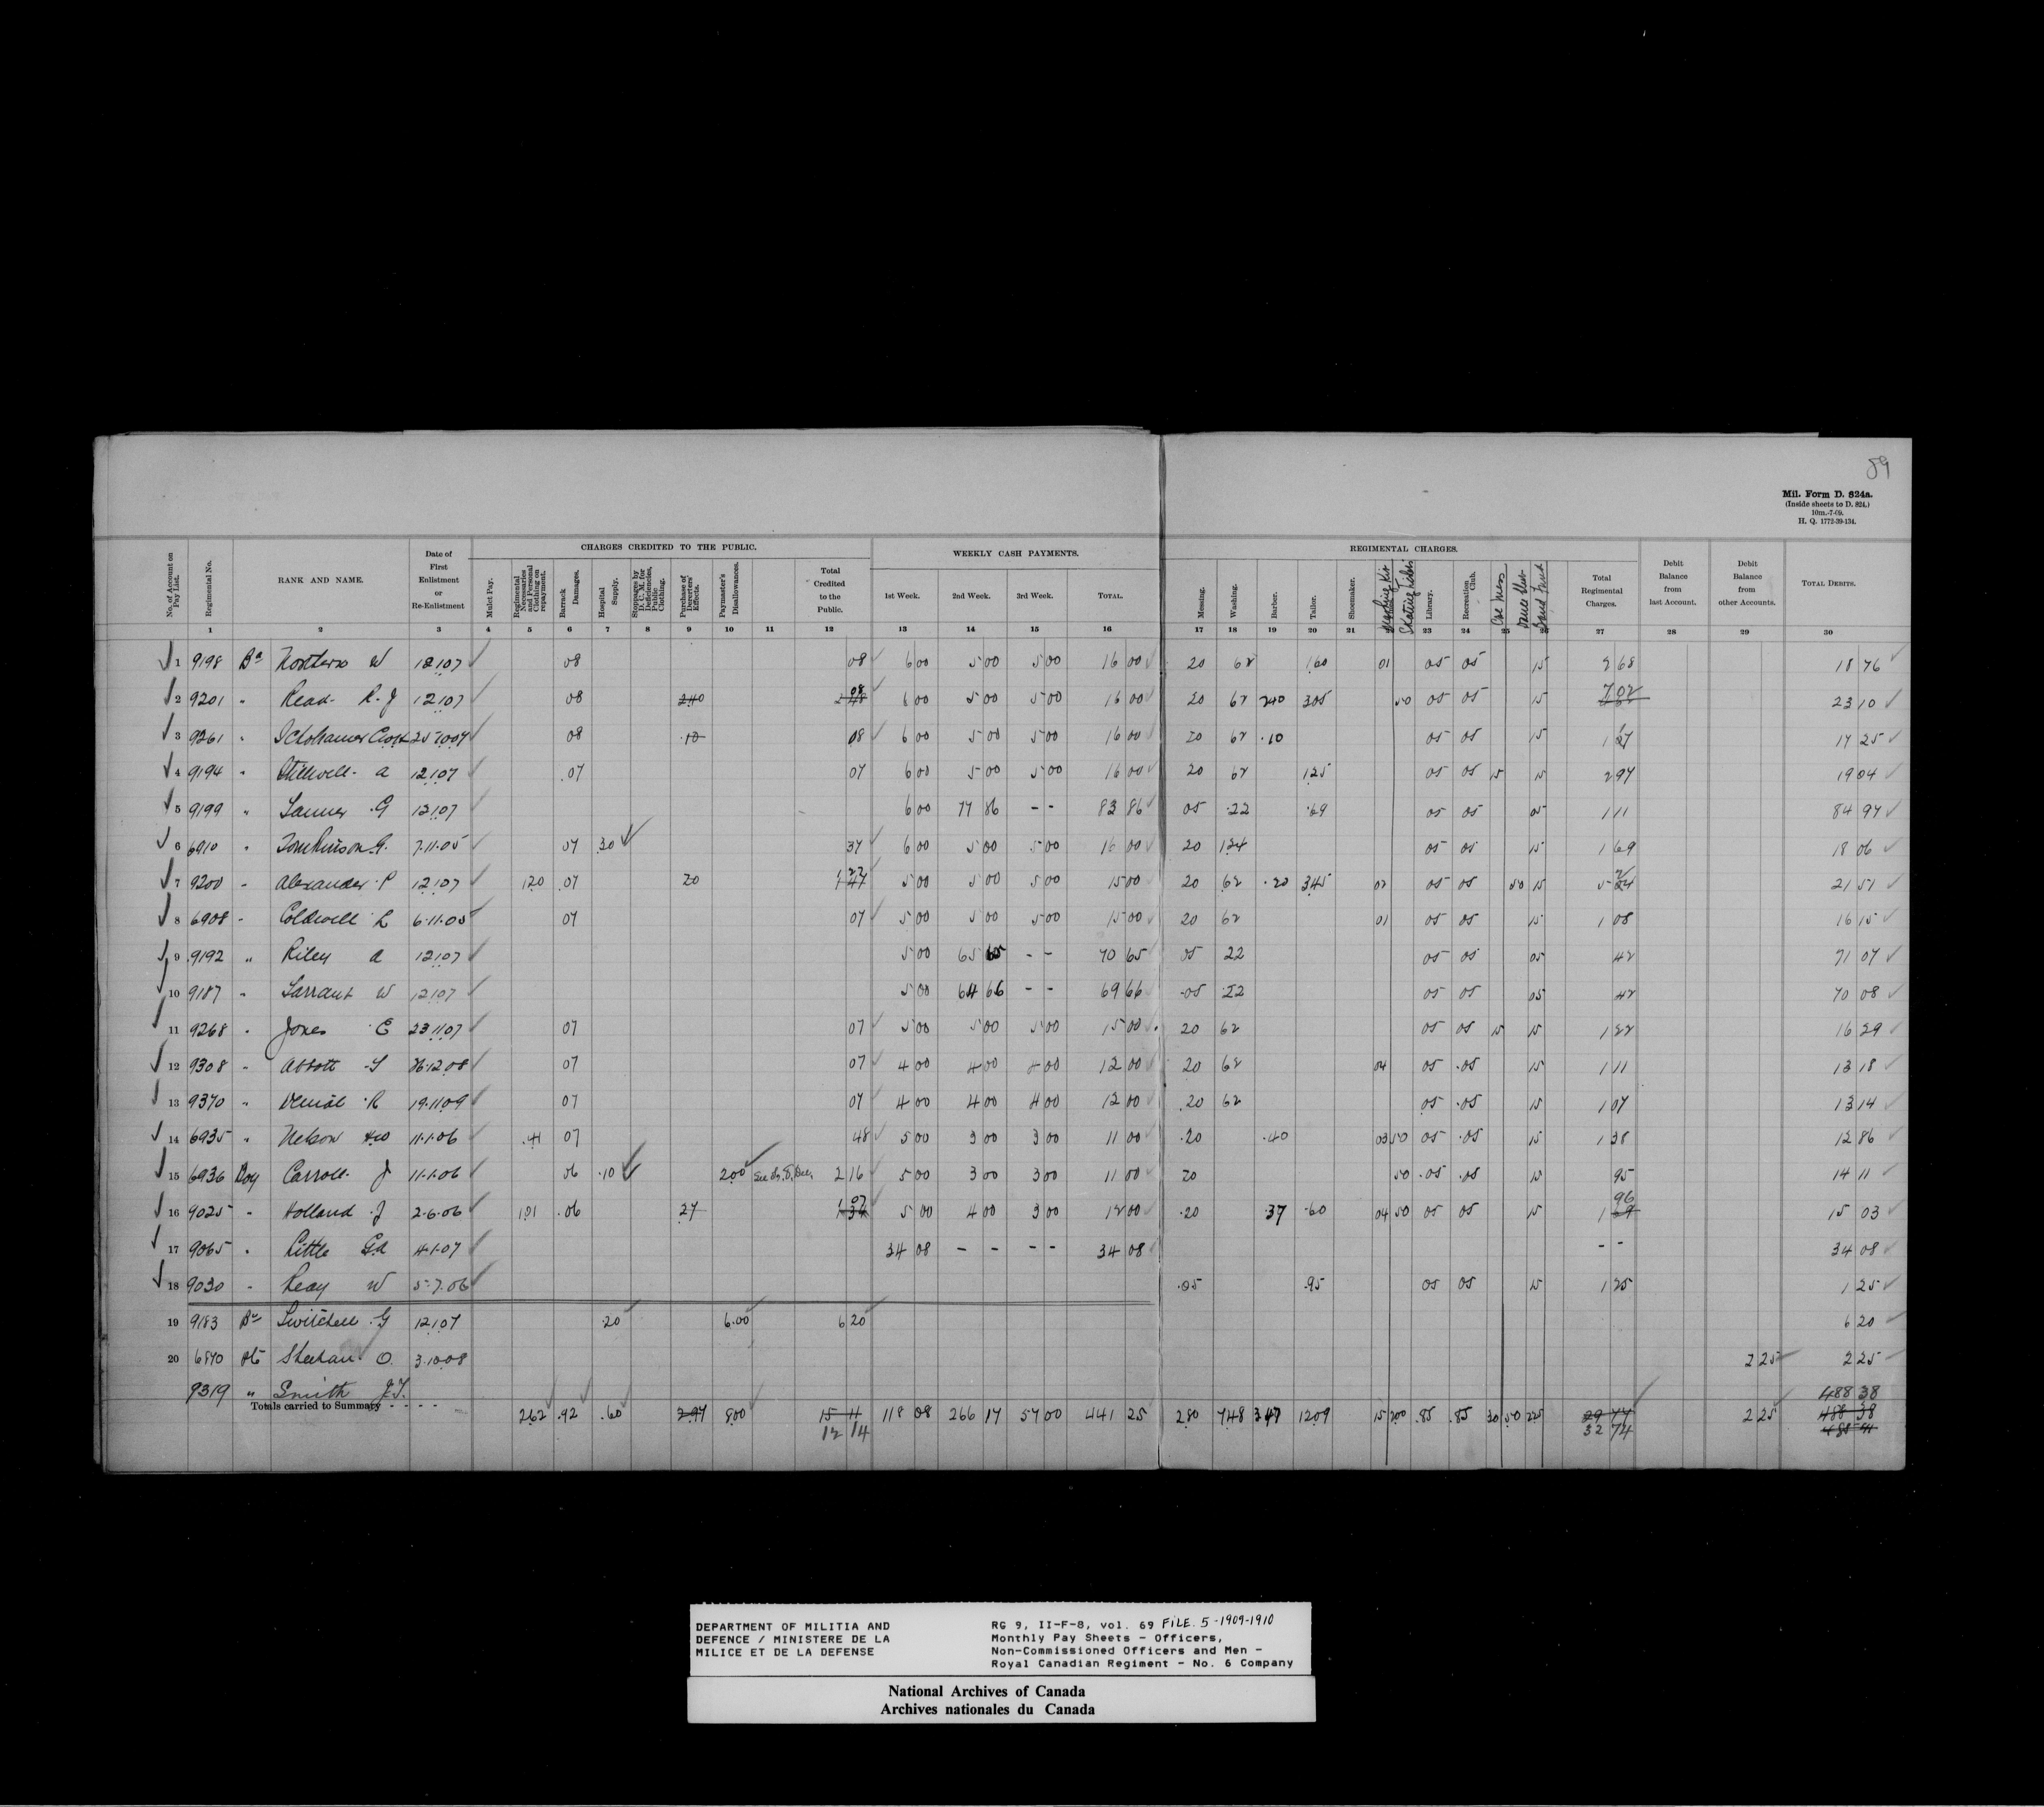 89
Mil. Form D. 824a.
(Inside sheets to D. 824.)
10m.-7-09.
H. Q. 1772-39-134.
CHARGES CREDITED TO THE PUBLIC. WEEKLY CASH PAYMENTS. REGIMENTAL CHARGES.
No. of Account on Pay List. Regimental No. RANK AND NAME. Date of First Enlistment or Re-Enlistment Mulct Pay. Regimental Necessaries and Personal Clothing on repayment. Barrack Damages. Hospital Supply. Stoppages by D. C. M. for Deficiencies, Public Clothing. Purchase of Deserters' Effects. Paymaster's Disallowances. Total Credited to the Public. 1st Week. 2nd Week. 3rd Week. TOTAL. Messing. Washing. Barber. Tailor. Shoemaker. Skating Rink Library. Recreation Club. Cse Mess Dance Band Fund Total Regimental Charges. Debit Balance from last Account. Debit Balance from other Accounts. TOTAL DEBITS.
1 2 3 4 5 6 7 8 9 10 11 12 13 14 15 16 17 18 19 20 21 23 24 25 26 27 28 29 30
1 9198 Bn W 12.1.07 08 08 6 00 5 00 5 00 16 00 20 62 1.60 01 05 05 15 2 68 18 76
2 9201 " Read R. J 12.1.07 08 2 40 08 6 00 5 00 5 00 16 00 20 62 2 40 305 50 05 05 15 7 02 23 10
3 9261 " 25.10.07 08 .10 08 6 00 5 00 5 00 16 00 20 62 .10 05 05 15 1 17 17 25
4 9194 " Stillwell A 12.1.07 .07 07 6 00 5 00 5 00 16 00 20 62 1 25 05 05 15 15 2 97 19 04
5 9199 " G 12.1.07 6 00 77 86 - - 83 86 05 .22 .69 05 05 05 1 11 84 97
6 6910 " Tomkinson G. 7.11.05 07 .30 37 6 00 5 00 5 00 16 00 20 124 05 05 15 1 69 18 06
7 9200 " Alexander P 12.1.07 1.20 .07 20 1 27 5 00 5 00 5 00 15 00 20 62 .20 3.45 02 05 05 50 15 5 24 21 51
8 6908 " Coldwell L 6.11.05 07 07 5 00 5 00 5 00 15 00 20 62 01 05 05 15 1 08 16 15
9 9192 " Riley A 12.1.07 5 00 65 65 - - 70 65 05 22 05 05 05 42 71 07
10 9187 " Tarrant W 12.1.07 5 00 64 66 - - 69 66 .05 .22 05 05 05 42 70 08
11 9268 " Jones E 23.11.07 07 07 5 00 5 00 5 00 15 00 20 62 05 05 15 15 1 22 16 29
12 9308 " Abbott 26.12.08 07 07 4 00 4 00 4 00 12 00 20 62 04 05 .05 15 1 11 13 18
13 9370 " R 19.11.09 07 07 4 00 4 00 4 00 12 00 .20 62 05 .05 15 1 07 13 14
14 6935 " Nelson 11.1.06 .41 07 48 5 00 3 00 3 00 11 00 .20 .40 03 50 05 .05 15 1 38 12 86
15 6936 Boy Carroll J 11.1.06 06 .10 2.00 2 16 5 00 3 00 3 00 11 00 20 50 .05 .05 15 95 14 11
16 9025 " Holland J 2.6.06 1.01 .06 27 1 07 5 00 4 00 3 00 12 00 .20 .37 .60 04 50 05 05 15 1 96 15 03
17 9065 " Little 4.1.07 34 08 - - - - 34 08 - - 34 08
18 9030 " Reay W 5.7.06 .05 .95 05 05 15 1 25 1 25
19 9183 Bn G 12.1.07 .20 6.00 6 20 6 20
20 6870 Pte Sheehan O. 3.10.08 2 25 2 25
9319 " Smith J.T. 488 38
Totals carried to Summary 2.62 .92 .60 2.97 8.00 15 11 118 08 266 17 57 00 441 25 2.80 7.48 3 47 12.09 15 2.00 .85 .85 30 50 2.25 29 77 2 25 488 38
12 14 32 74 485 41
DEPARTMENT OF MILITIA AND
DEFENCE / MINISTERE DE LA
MILICE ET DE LA DEFENSE
RG 9, II-F-8, vol. 69 FILE. 5-1909-1910
Monthly Pay Sheets - Officers,
Non-Commissioned Officers and Men -
Royal Canadian Regiment - No. 6 Company
National Archives of Canada
Archives nationales du Canada